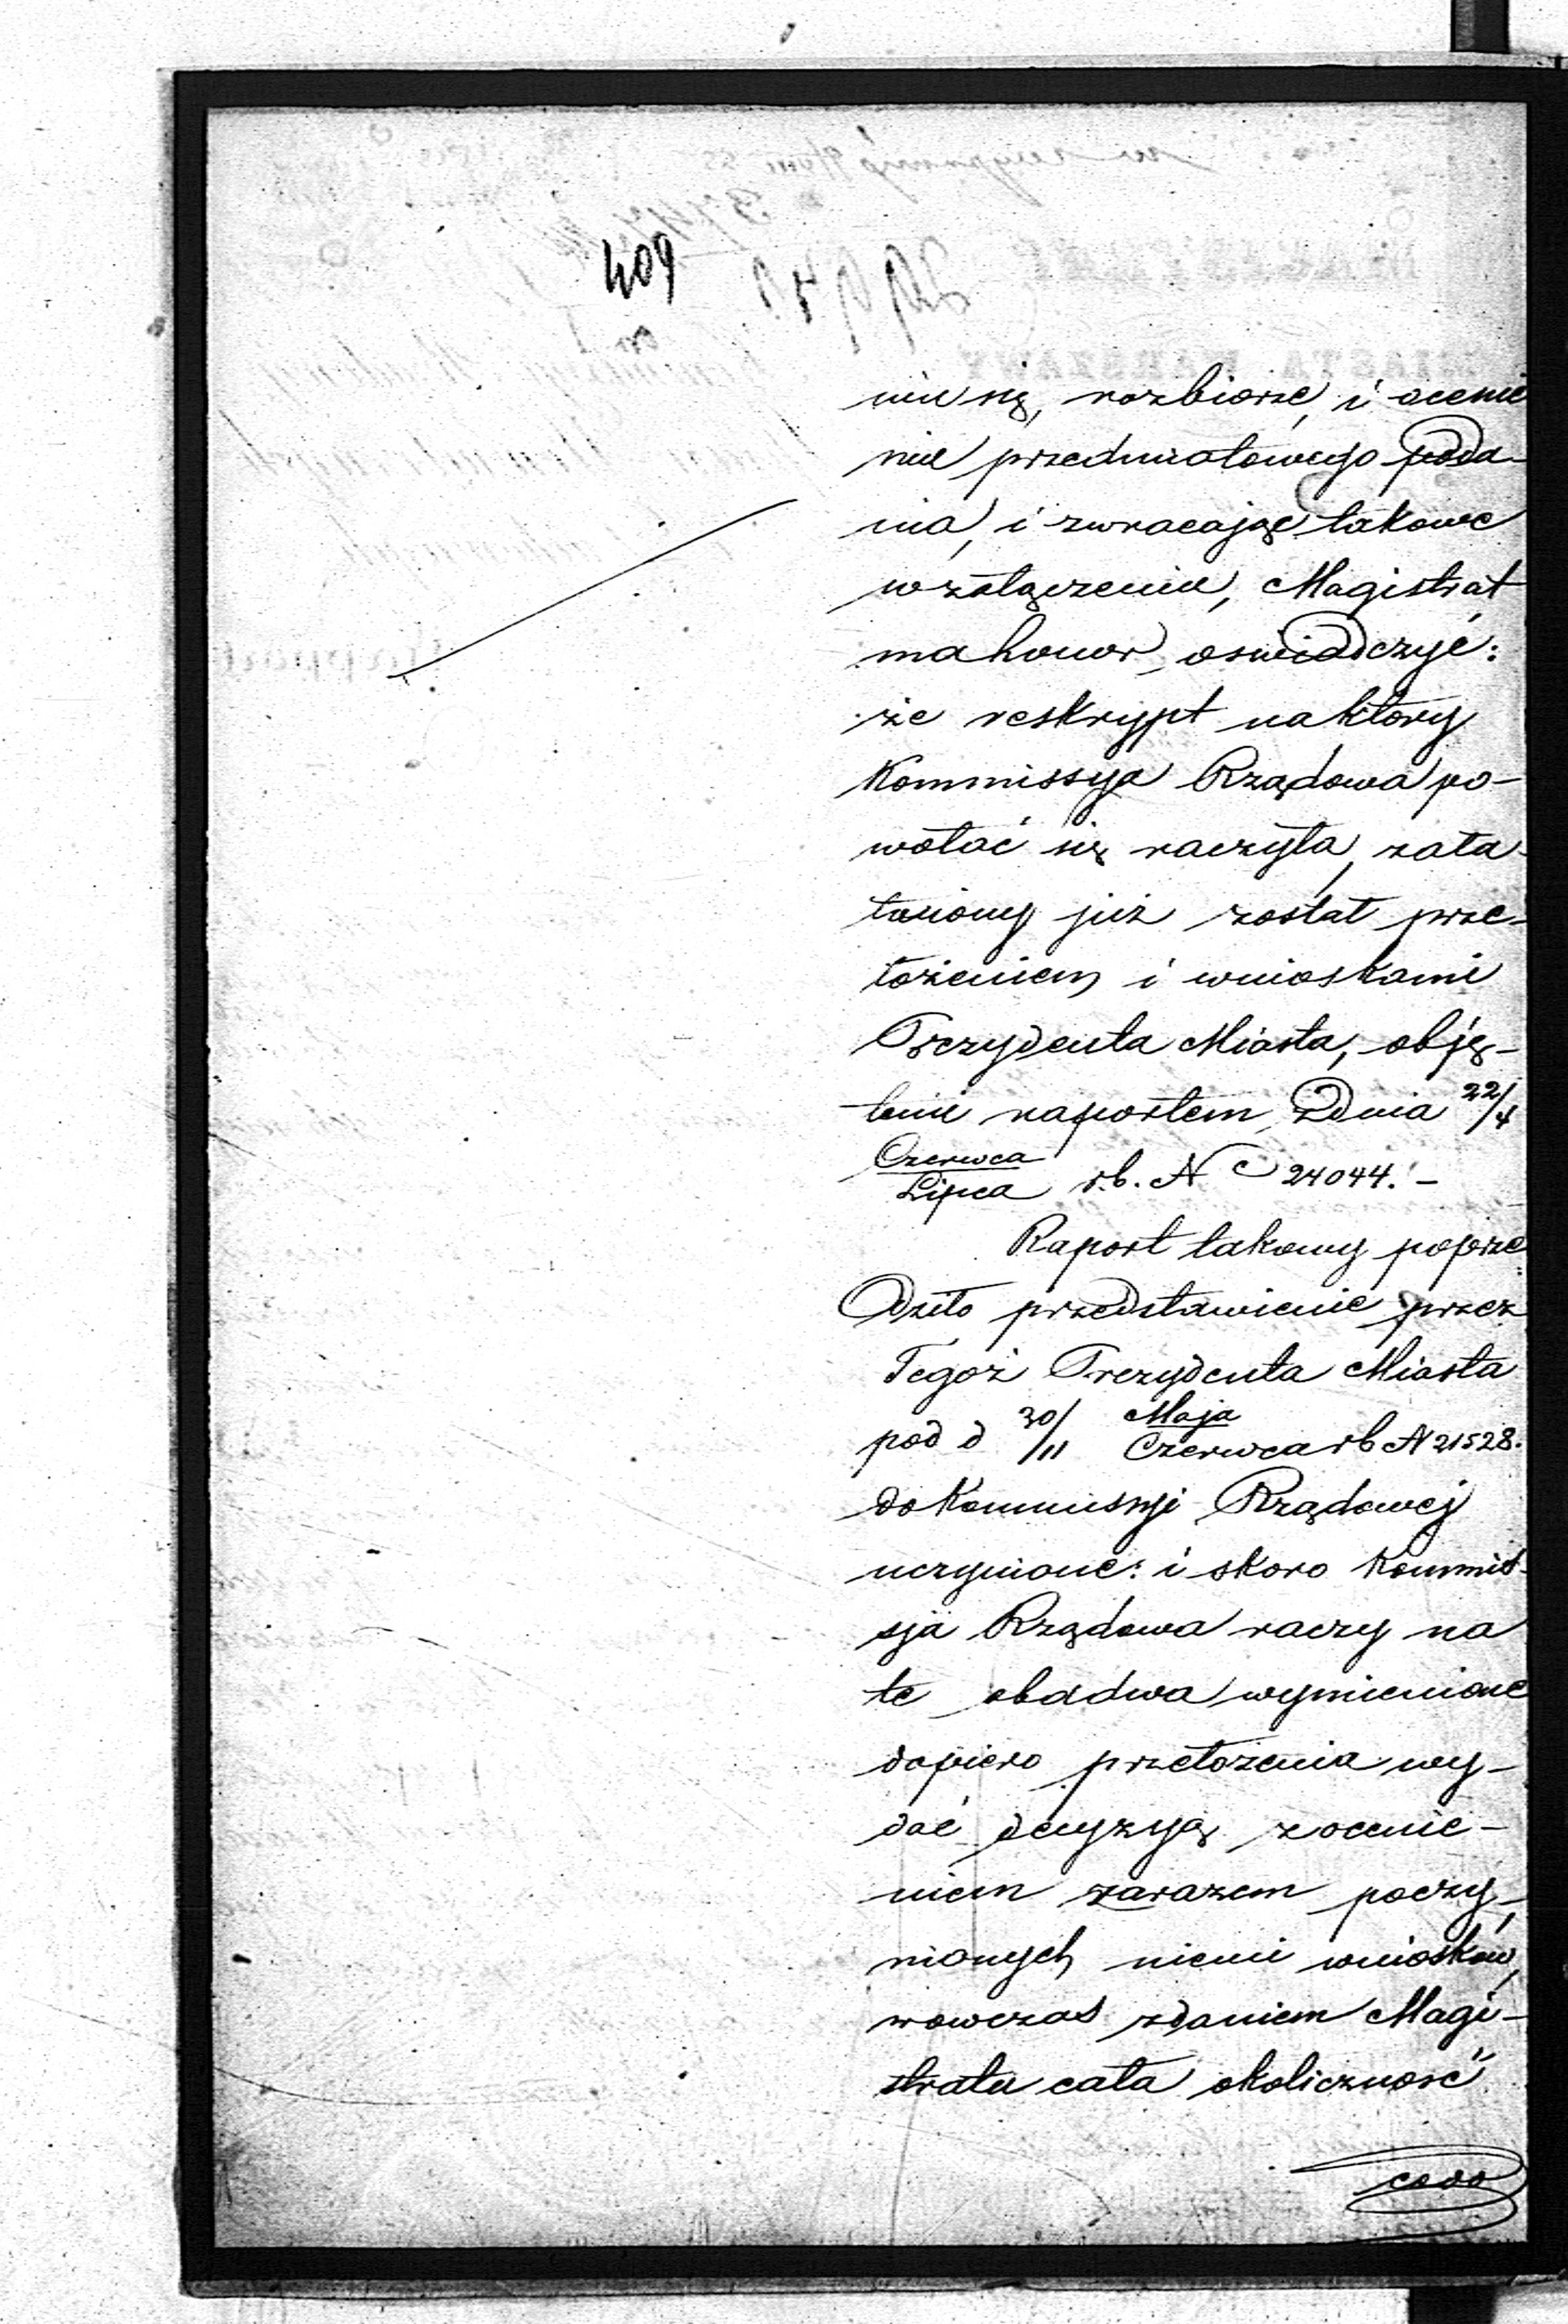 409
niu się, rozbiorze, i ocenie
nie przedmiotowego poda-
nia, i zwracając takowe
w załączeniu, Magistrat
ma honor oswiadczyć:
że reskrypt na ktory
Kommissya Rządowa po-
wołać się raczyła, zała-
twiony już został prze-
łożeniem i wnioskami
Prezydenta Miasta, obję-
temi raportem z dnia 22/4
Czerwca/Lipca r.b. N 24044.-
Raport takowy poprze
dziło przedstawienie przez
Tegoż Prezydenta Miasta
pod d 30/11 Maja/Czerwca rb N 21528.
do Kommissyi Rządowej
uczynione: i skoro Kommis-
sja Rządowa raczy na
te obadwa wymienione
dopiero przełożenia wy-
dać decyzyą z ocenie-
niem zarazem poczy-
nionych niemi wniosków,
wowczas zdaniem Magi-
stratu cała okoliczność